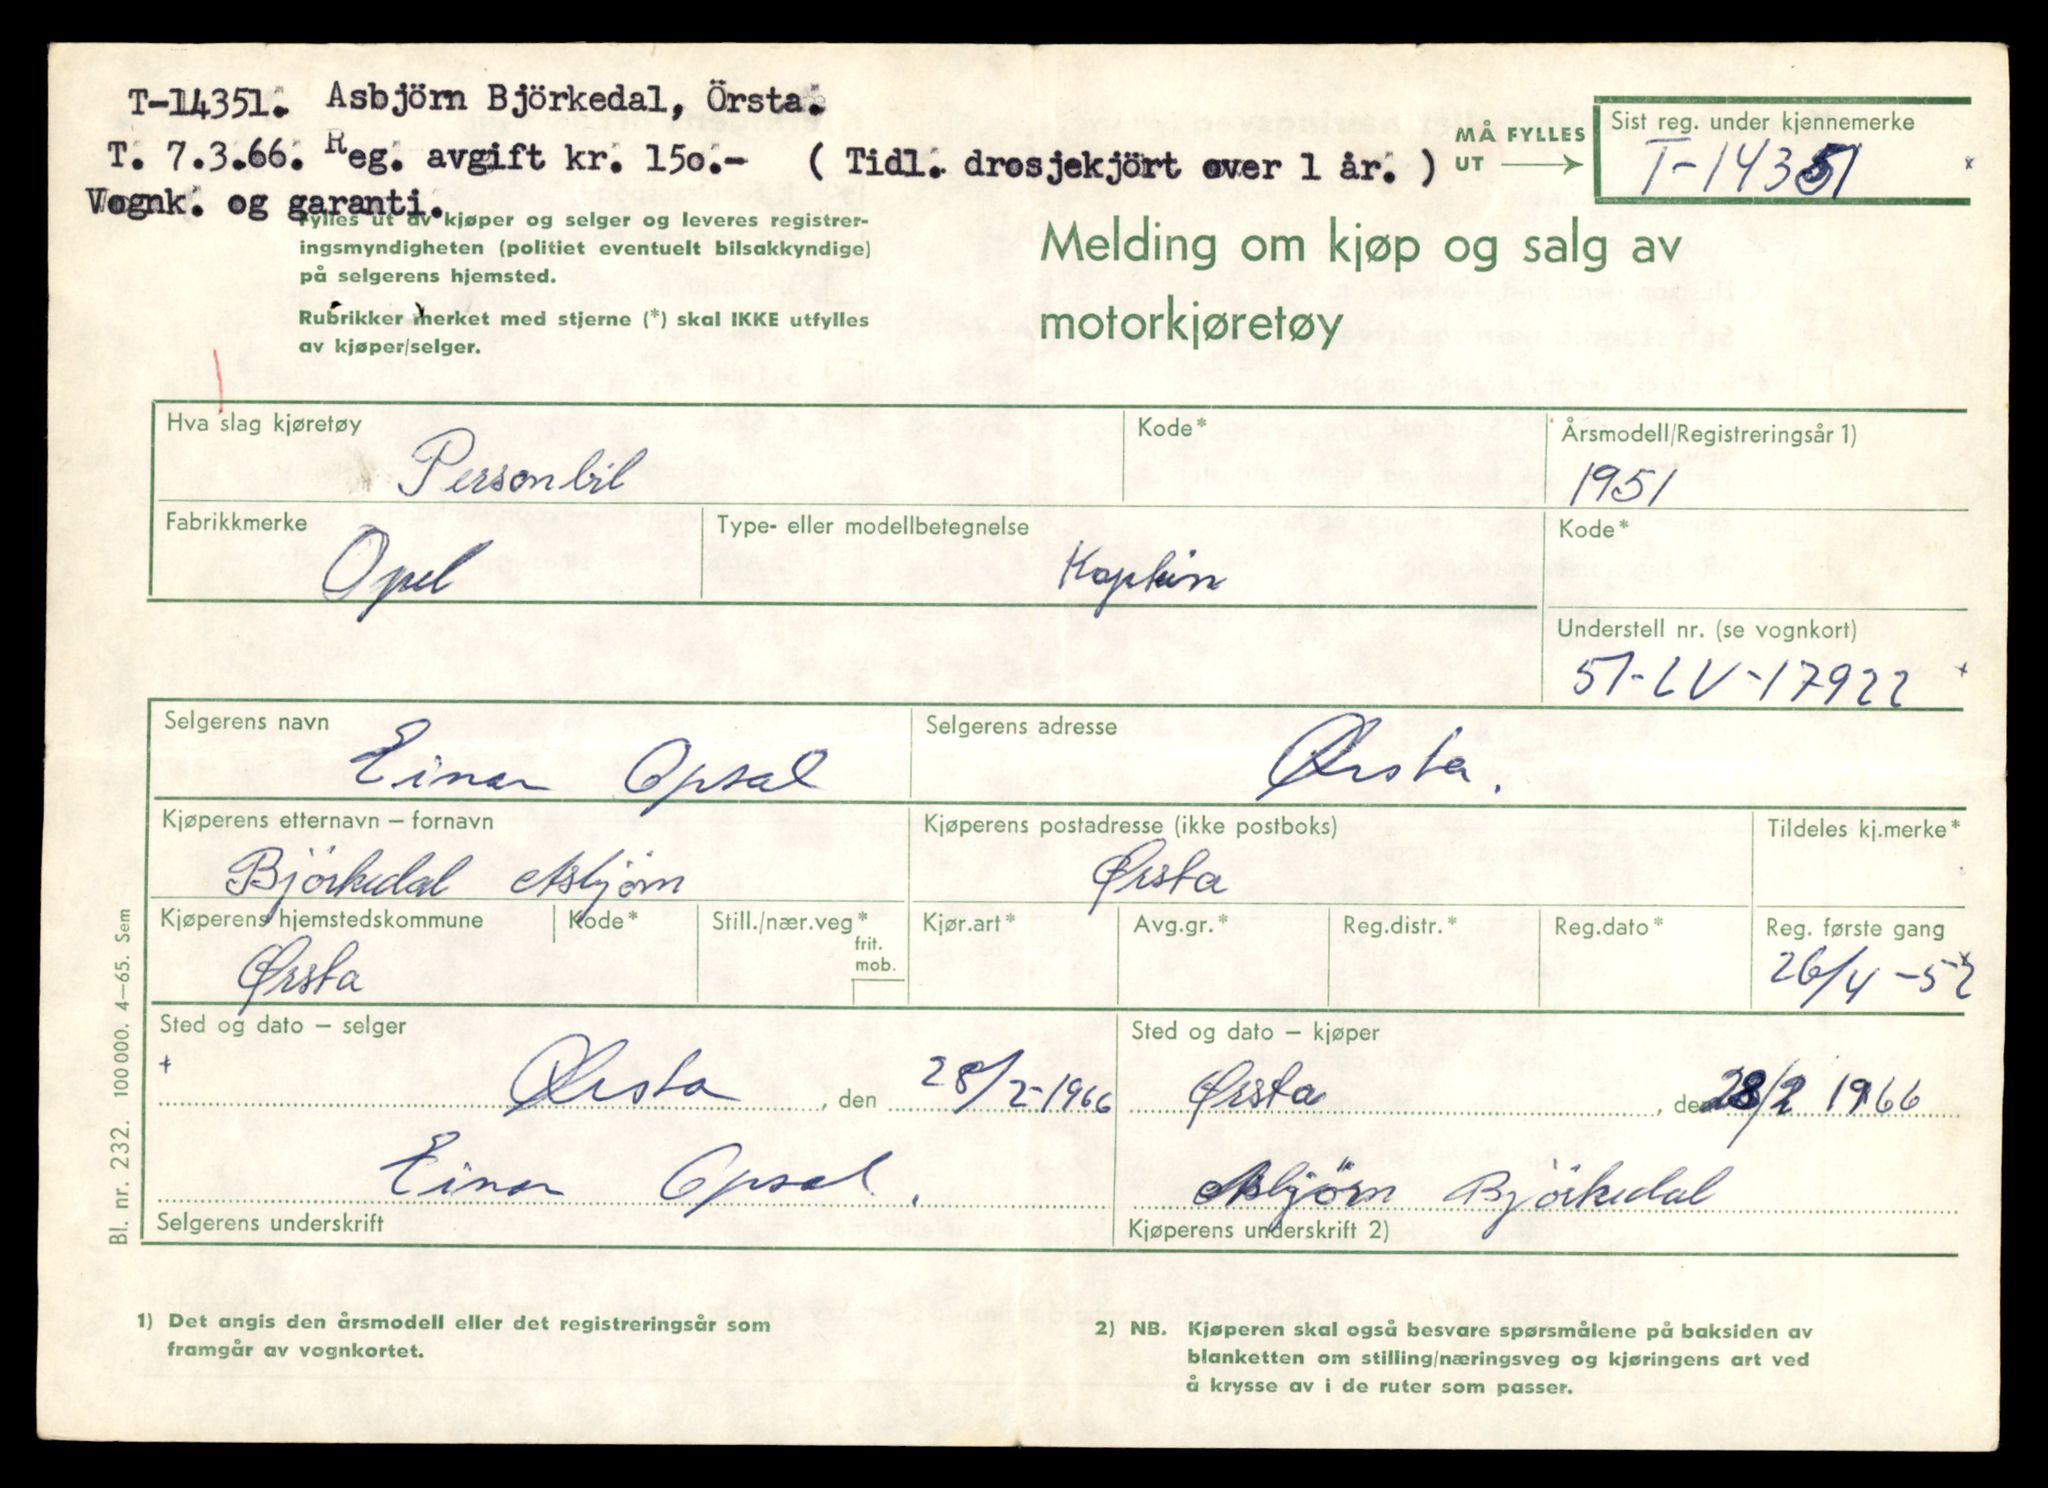 T-14351. Asbjörn Björkedal, Örsta.
T. 7.3.66. Reg. avgift kr. 150.- ( Tidl. drosjekjört over 1 år. )
Vognk. og garanti.
MÅ FYLLES
UT
Sist reg. under kjennemerke
T-14351
Fylles ut av kjøper og selger og leveres registrer-
ingsmyndigheten (politiet eventuelt bilsakkyndige)
på selgerens hjemsted.
Rubrikker merket med stjerne (*) skal IKKE utfylles
av kjøper/selger.
Melding om kjøp og salg av
motorkjøretøy
Hva slag kjøretøy
Personbil
Kode*
Årsmodell/Registreringsår 1)
1951
Fabrikkmerke
Opel
Type- eller modellbetegnelse
Kaptein
Kode*
Understell nr. (se vognkort)
51-LV-17922
Selgerens navn
Einar Opsal
Selgerens adresse
Ørsta.
Kjøperens etternavn – fornavn
Björkedal Asbjörn
Kjøperens postadresse (ikke postboks)
Ørsta
Tildeles kj.merke*
Kjøperens hjemstedskommune
Ørsta
Kode*
Still./nær.veg*
frit.
mob.
Kjør.art*
Avg.gr.*
Reg.distr.*
Reg.dato*
Reg. første gang
26/4 -52
Sted og dato – selger
Ørsta, den 28/2-1966
Sted og dato – kjøper
Ørsta, den 28/2 1966
Einar Opsal.
Selgerens underskrift
Asbjörn Björkedal
Kjøperens underskrift 2)
Bl. nr. 232. 100 000. 4–65. Sem
1) Det angis den årsmodell eller det registreringsår som
framgår av vognkortet.
2) NB. Kjøperen skal også besvare spørsmålene på baksiden av
blanketten om stilling/næringsveg og kjøringens art ved
å krysse av i de ruter som passer.